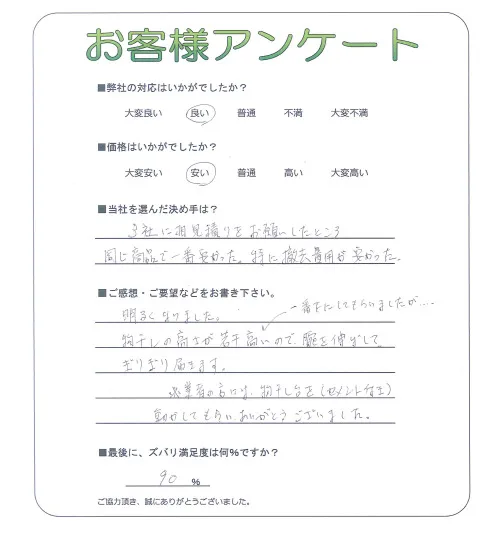 お客様アンケート
■弊社の対応はいかがでしたか？
大変良い 良い 普通 不満 大変不満
■価格はいかがでしたか？
大変安い 安い 普通 高い 大変高い
■当社を選んだ決め手は？
3社に相見積りをお願いしたところ
同じ商品で一番安かった。特に撤去費用が安かった。
■ご感想・ご要望などをお書き下さい。
一番下にしてもらいましたが…
明るくなりました。
物干しの高さが若干高いので、腕を伸ばして
ぎりぎり届きます。
作業者の方には、物干し台を（セメント付き）
動かしてもらい、ありがとうございました。
■最後に、ズバリ満足度は何％ですか？
90 ％
ご協力頂き、誠にありがとうございました。